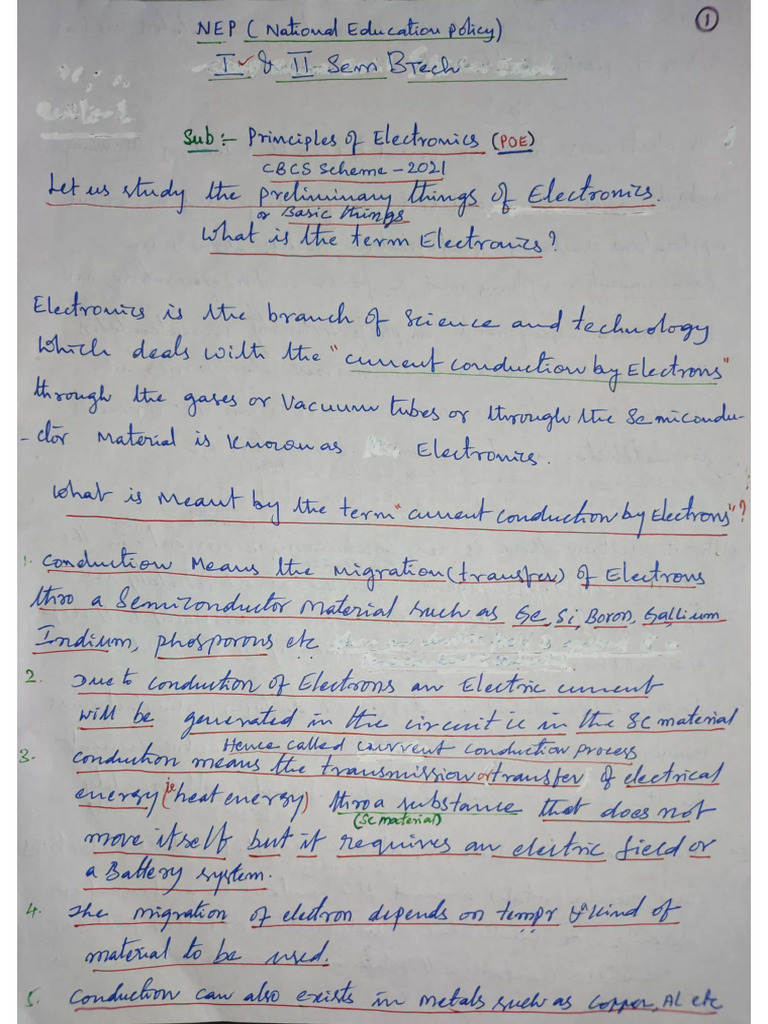 1
NEP (National Education Policy)
I & II Sem BTech
Sub :- Principles of Electronics (POE)
CBCS Scheme - 2021
Let us study the preliminary things of Electronics.
or Basic things
What is the term Electronics?
Electronics is the branch of Science and technology
Which deals with the "current conduction by Electrons"
through the gases or Vacuum tubes or through the Semicondu-
-ctor Material is known as Electronics.
What is Meant by the term "current conduction by Electrons"?
1. Conduction Means the Migration (transfer) of Electrons
thro a Semiconductor Material such as Ge, Si, Boron, Gallium
Indium, phosporous etc
2. Due to conduction of Electrons an Electric current
will be generated in the circuit ie in the SC material
Hence called current conduction process
3. conduction means the transmission or transfer of electrical
energy (ie heat energy) thro a substance that does not
(SC material)
move itself but it requires an electric field or
a Battery system.
4. The migration of electron depends on tempr & kind of
material to be used.
5. Conduction can also exists in metals such as Copper, Al etc